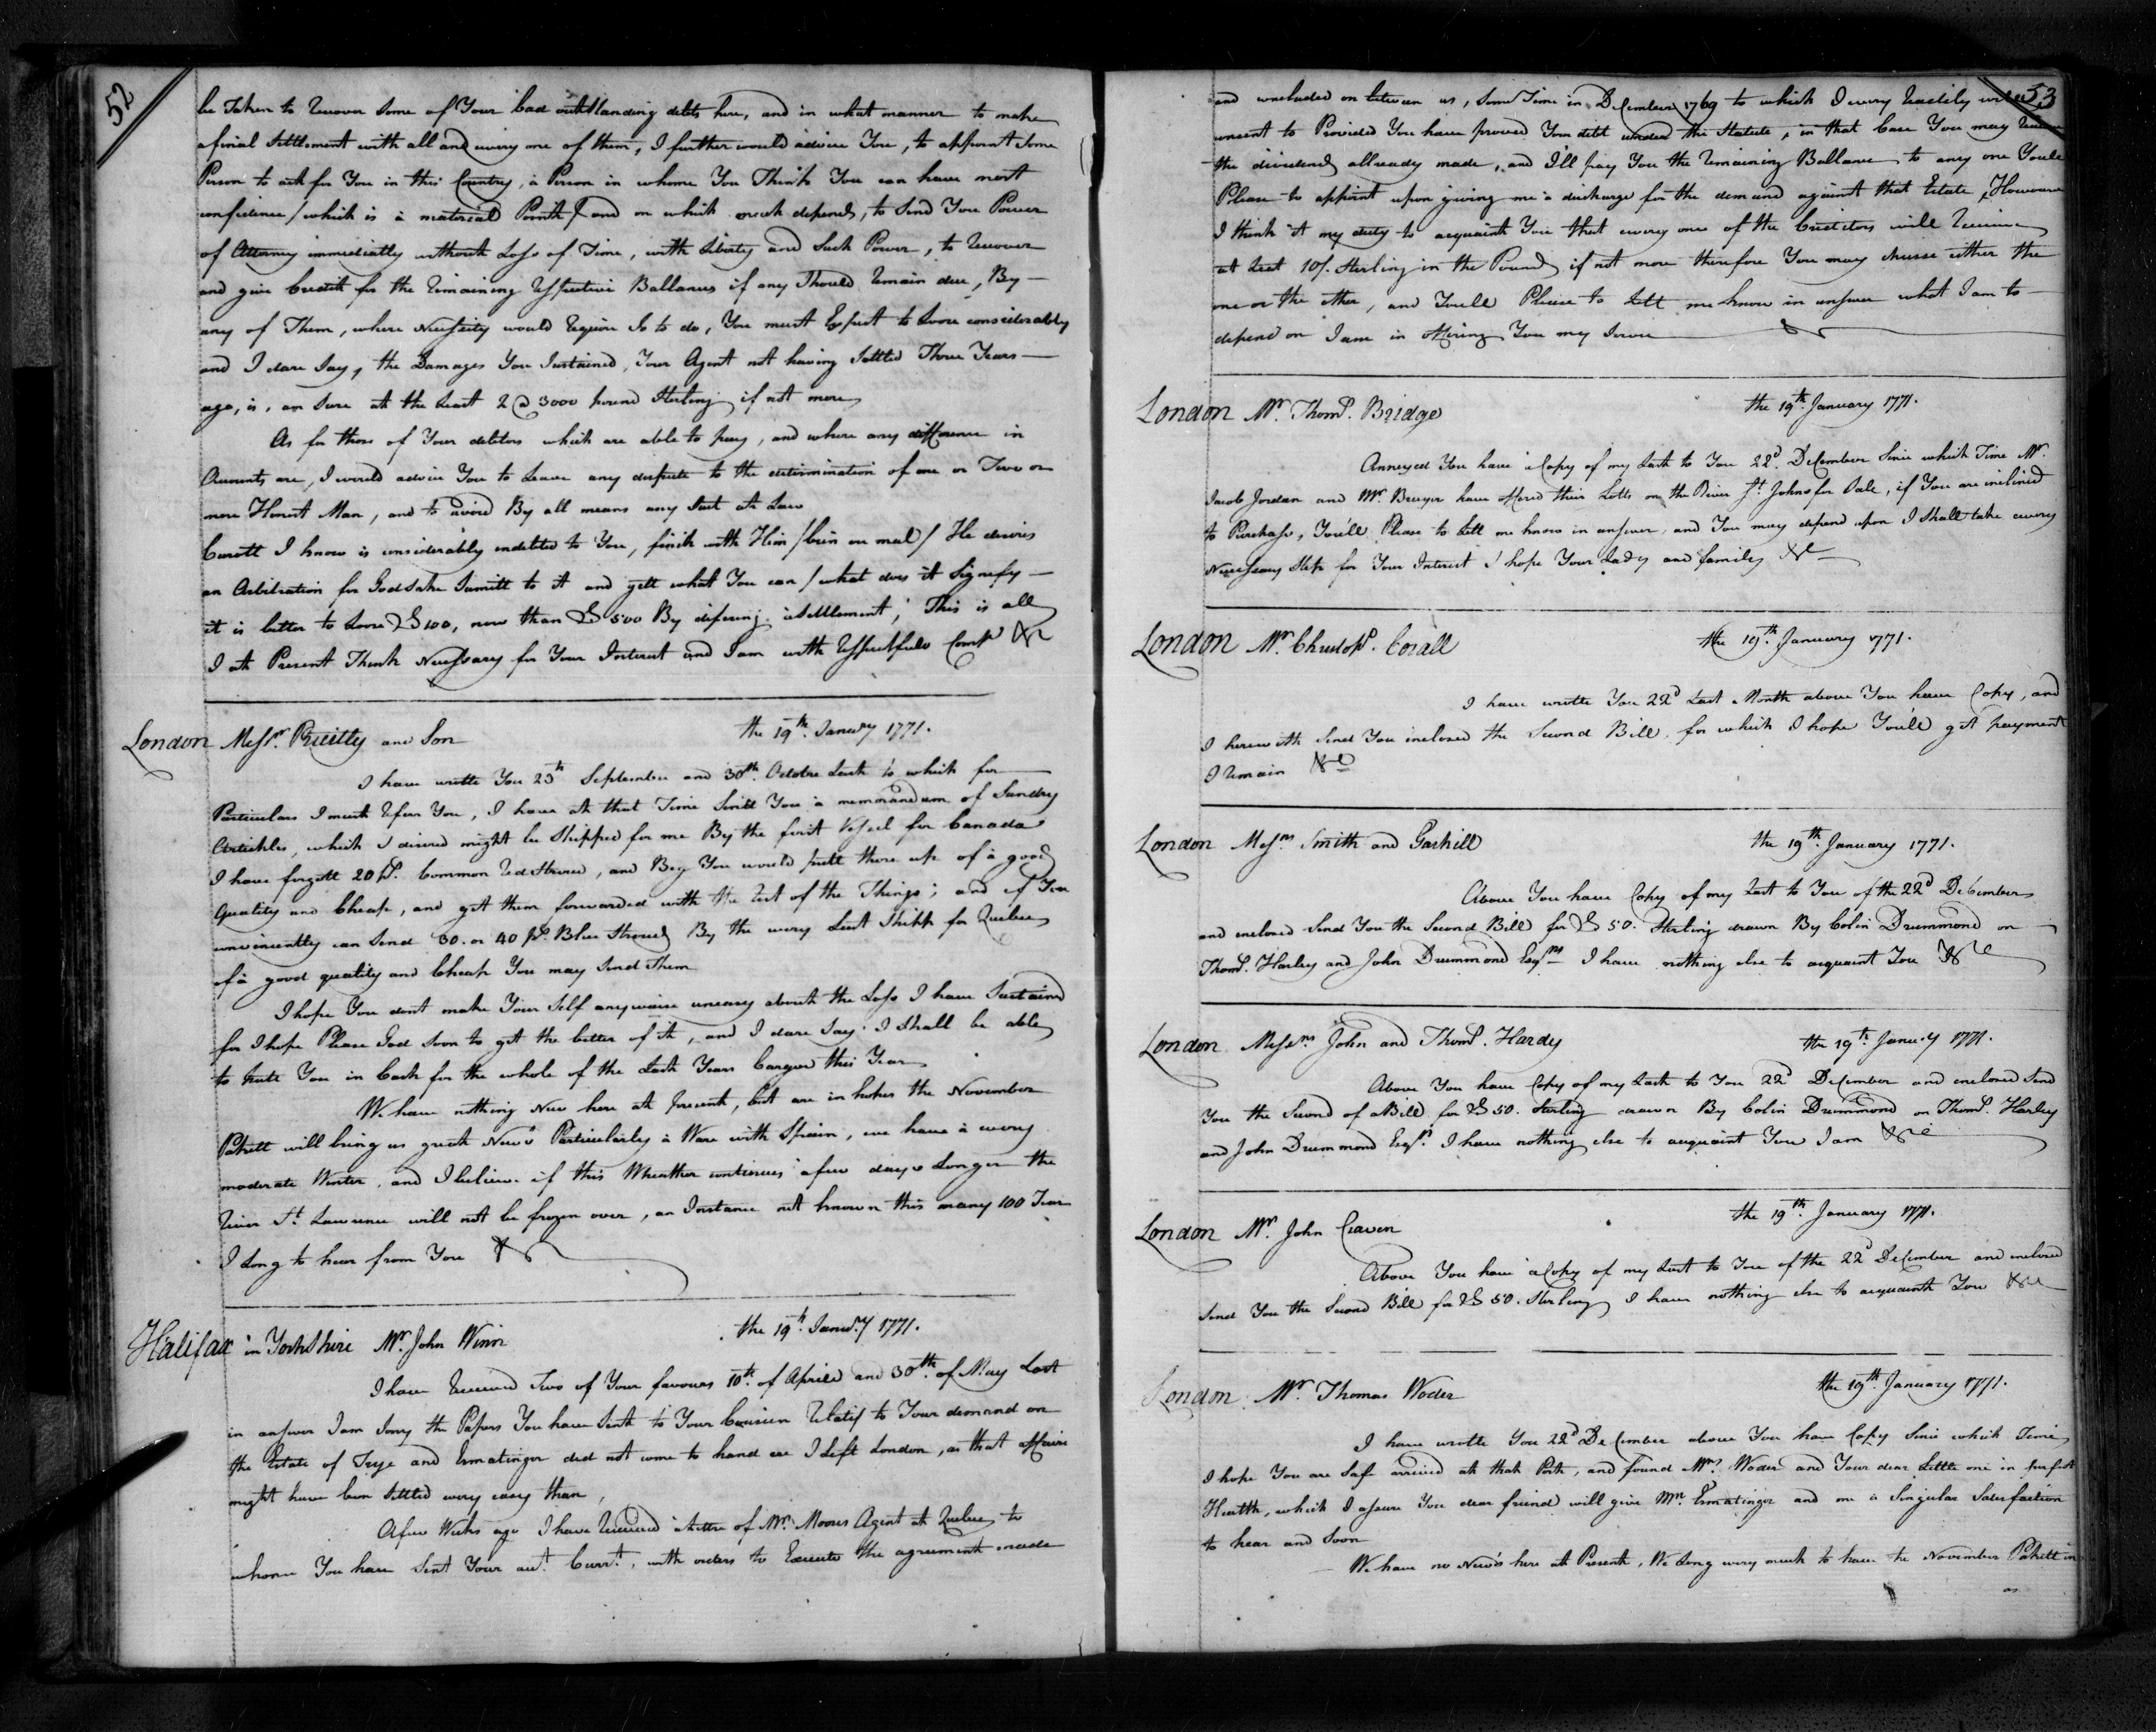 52
be Taken to Recover Some of Your bad outstanding debts here, and in what manner to make
a final Settlement with all and every one of them, I further would advise You, to appoint Some
Person to act for You in this Country, a Person in whome You Think You can have most
confidence / which is a material Point / and on which much depends, to Send You Power
of Attorney immediatly without Loss of Time, with Liberty and Such Power, to Recover
and give Creditt for the Remaining Respective Ballances if any Should Remain due, By
any of Them, where Necessity would Require So to do, You must Expect to Loose considerably
and I dare Say, the Damages You Sustained, Your Agent not having Settled Three Years
ago, is, am Sure at the Least 2 @ 3000 pound Sterling if not more
As for those of Your debtors which are able to pay, and where any difference in
Amounts are, I would advise You to Leave any dispute to the determination of one or Two or
more Honest Man, and to avoid By all means any Suit at Law
Curott I know is considerably indebted to You, finish with Him / bien ou mal / He desires
an Arbitration for Godsake Sumitt to it and gett what You can / what does it Signefy
it is better to Loose £ 100, now than £ 500 By difering a Settlement; This is all
I at Present Think Necessary for Your Interest and I am with Respectfuls Compt &c
London Messrs. Prielly and Son the 19th. Janury 1771.
I have wrotte You 25th September and 30th. Octobre Last to which for
Particulars I must Refer You, I have at that Time Sent You a memorandum of Sundry
Artickles, which I desired might be Shipped for me By the first Vessel for Canada
I have forgott 20 ps. Common Red Stroud, and Beg You would putt them up of a good
Quality and Cheap, and get them forwarded with the Rest of the Things; and if You
conveniently can Send 30. or 40 ps. Blue Stroud By the very Last Shipp for Quebec
of a good quality and Cheap You may Send Them
I hope You dont make Your Self anywaise uneasy about the Loss I have Sustaind
for I hope Please God Soon to get the better of it, and I dare Say I Shall be able
to Remite You in Cash for the whole of the Last Years Cargoe this Year
We have nothing New here at present, but are in hopes the November
Pakett will bring us great News Particularly a Ware with Spain, we have a very
moderate Winter, and I believe if this Wheather continues a few days Longer the
River St. Lawrence will not be frozen over, an Instance not known this many 100 Year
I Long to hear from You &c
Halifax in Yorkshire Mr. John Winn the 19th. Janury 1771.
I have Received Two of Your favours 10th. of Aprill and 30th. of May Last
in answer I am Sorry the Papers You have Sent to Your Cousien Relatif to Your demand on
the Estate of Trye and Ermatinger did not come to hand ere I Left London, as that affaire
might have been Settled very easy than,
A few Weeks ago I have Received a Letter of Mr. Moores Agent at Quebec to
whom You have Sent Your acct. Currt. with orders to Execute the agreement made
53
and concluded on between us, Some Time in December 1769 to which I very Readily
consent to Provided You have proved Your debt under the Statute, in that Case You may Receive
the dividends allready made, and I'll pay You the Remaining Ballance to any one Youll
Please to appoint upon giving me a discharge for the demand against that Estate, However
I think it my duty to acquaint You that every one of the Creditors will Receive
at Least 10/. Sterling in the Pound if not more therefore You may chuese either the
one or the other, and Youll Please to Lett me know in answer what I am to
depend on I am in offering You my Servce
London Mr. Thoms. Bridge the 19th. January 1771.
Annexed You have a Copy of my Last to You 22d. December Since which Time Mr.
Jacob Jordan and Mr. Breyer have offered their Lotts on the River St. Johns for Sale, if You are inclined
to Purchase, Youll Please to Lett me know in answer, and You may depend upon I Shall take every
Necessary Step for Your Interest I hope Your Lady and family &c
London Mr. Christopr. Corall the 19th. January 1771.
I have wrotte You 22d Last Month above You have Copy, and
I herewith Send You inclosed the Second Bill for which I hope Youll get payment
I Remain &c
London Messrs Smith and Gaskill the 19th January 1771.
Above You have Copy of my Last to You of the 22d December
and enclosed Send You the Second Bill for £ 50. Sterling drawn By Colin Drummond on
Thoms. Harley and John Drummond Esqrs I have nothing else to acquaint You &c
London Messrs John and Thoms. Hardy the 19th. Janury 1771.
Above You have Copy of my Last to You 22d December and enclosed Send
You the Second of a Bill for £ 50. Sterling drawn By Colin Drummond on Thoms. Harley
and John Drummond Esqrs. I have nothing else to acquaint You I am &c
London Mr. John Craven the 19th January 1771.
Above You have a Copy of my Last to You of the 22d December and inclosed
Send You the Second Bill for £ 50. Sterling I have nothing else to acquaint You &c
London Mr. Thomas Woder the 19th. January 1771.
I have wrotte You 22d December above You have Copy Since which Time
I hope You are Safe arrived at that Port, and found Mrs. Woder and Your dear Little one in perfect
Health, which I assure You dear friend will give Mrs. Ermatinger and me a Singular Satisfaction
to hear and Soon
We have no New's here at Present, We Long very much to have the November Pakett in
as